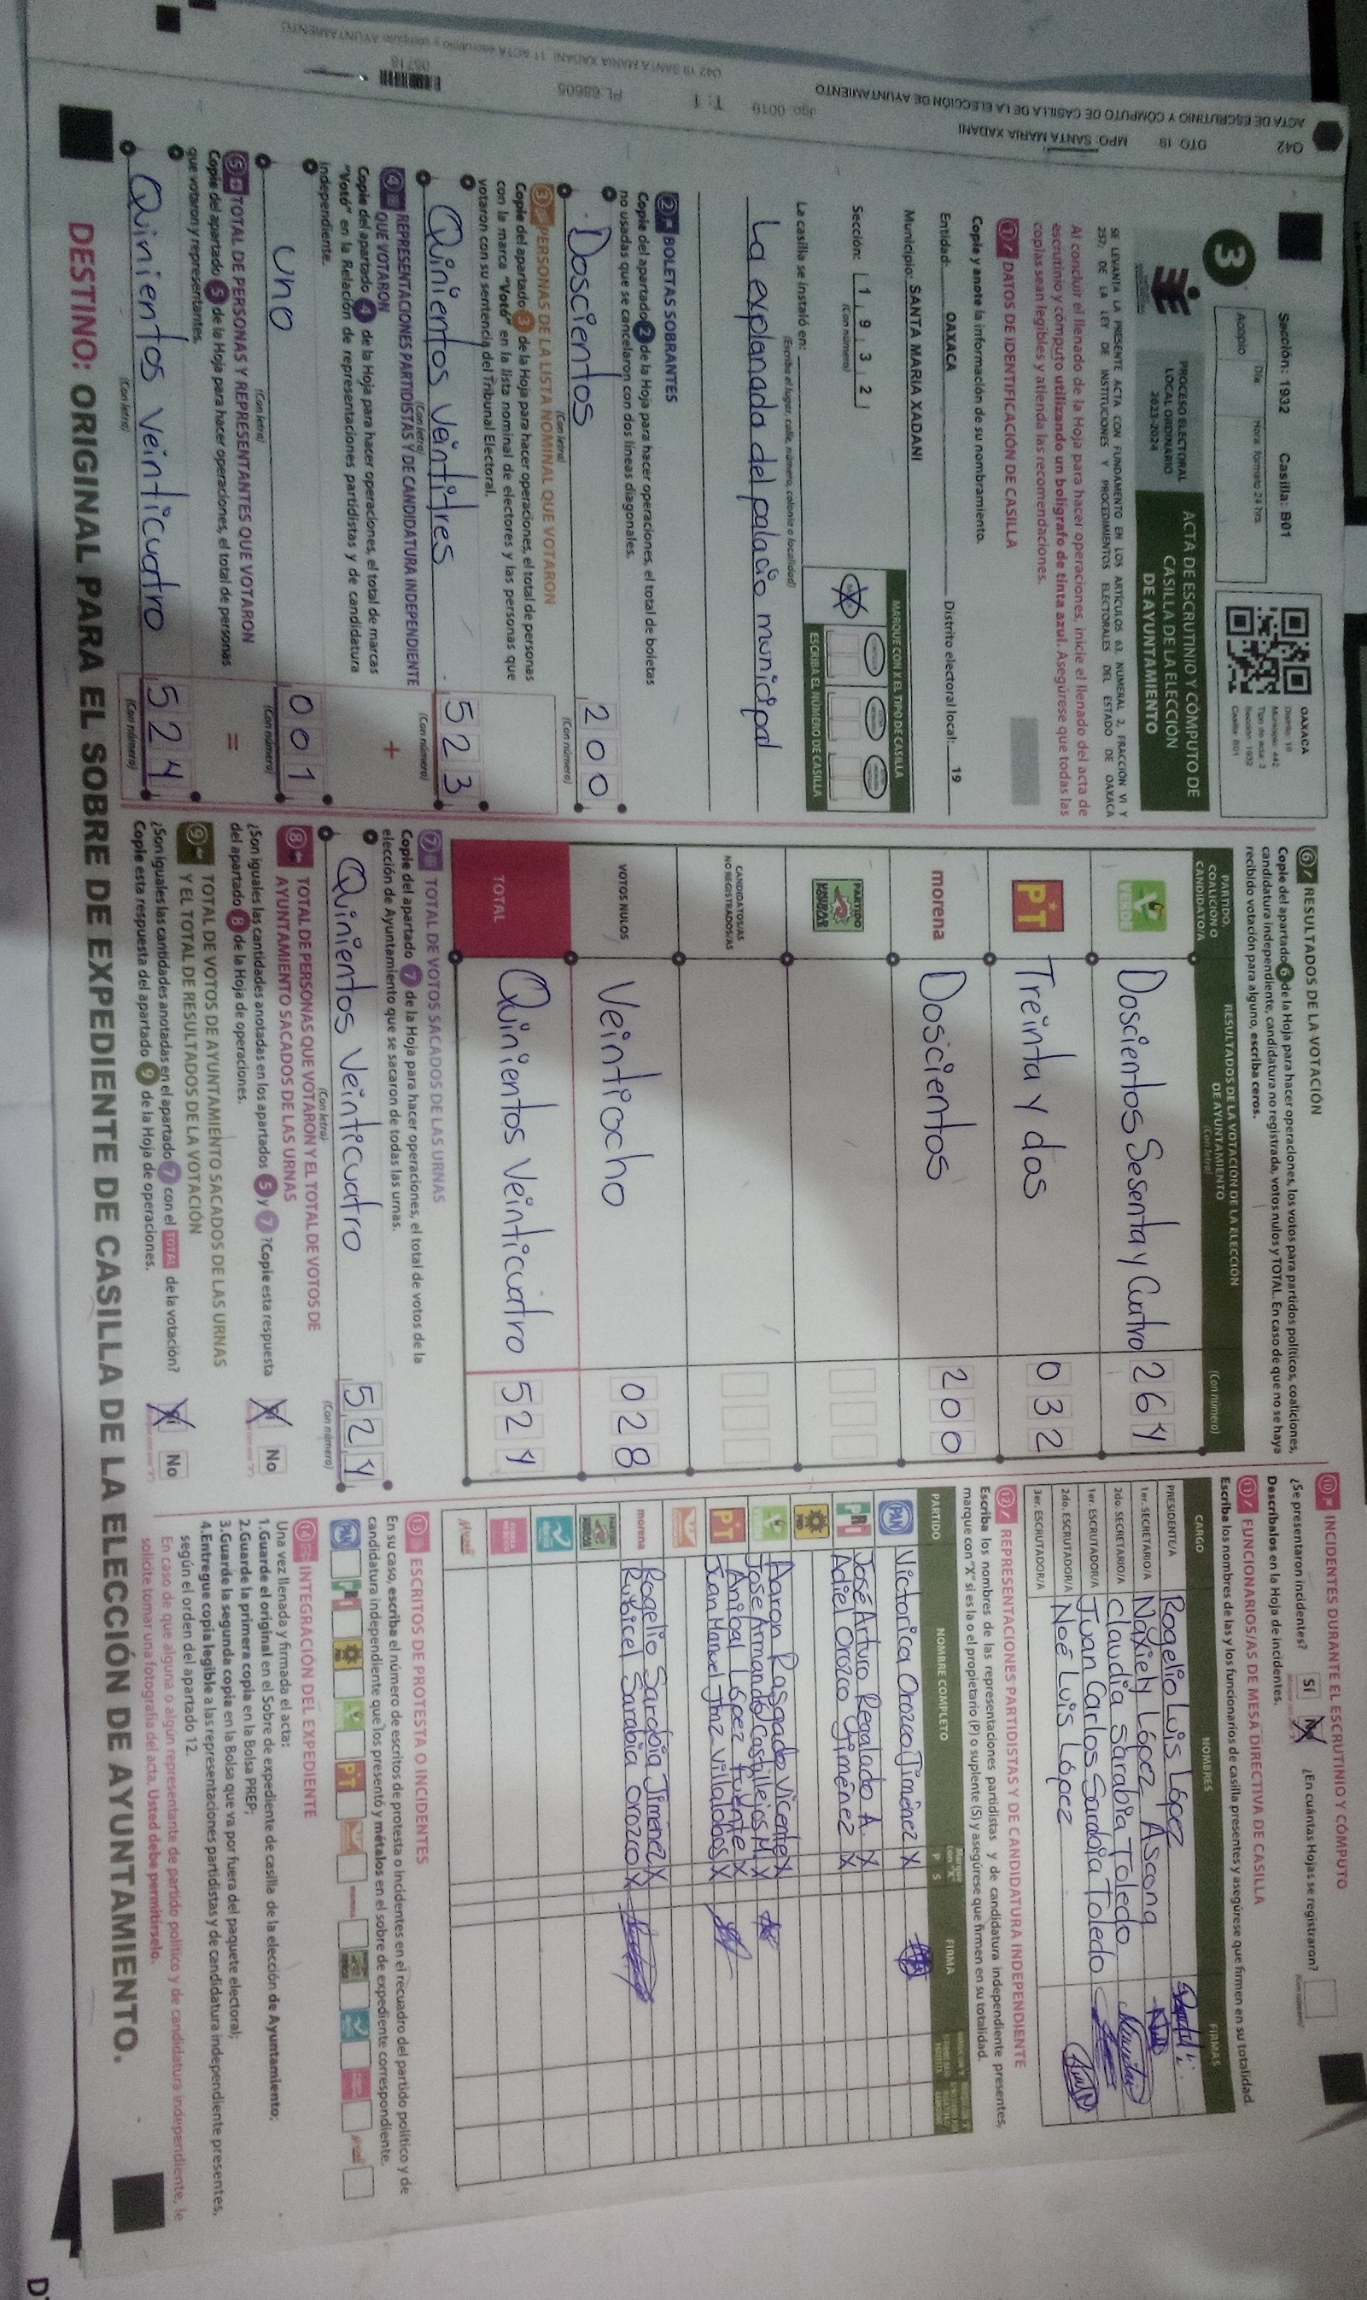 042 DTO. 19 MPO. SANTA MARIA XADANI
ACTA DE ESCRUTINIO Y CÓMPUTO DE CASILLA DE LA ELECCIÓN DE AYUNTAMIENTO
T: 1
PL. 68605
Sección: 1932 Casilla: B01
Día Hora: formato 24 hrs.
Acopio
3
OAXACA
Distrito: 19
Municipio: 442
Tipo de acta: 3
Sección: 1932
Casilla: B01
PROCESO ELECTORAL
LOCAL ORDINARIO
2023-2024
ACTA DE ESCRUTINIO Y CÓMPUTO DE
CASILLA DE LA ELECCIÓN
DE AYUNTAMIENTO
SE LEVANTA LA PRESENTE ACTA CON FUNDAMENTO EN LOS ARTÍCULOS 63, NUMERAL 2, FRACCIÓN VI Y
257, DE LA LEY DE INSTITUCIONES Y PROCEDIMIENTOS ELECTORALES DEL ESTADO DE OAXACA
Al concluir el llenado de la Hoja para hacer operaciones, inicie el llenado del acta de
escrutinio y cómputo utilizando un bolígrafo de tinta azul. Asegúrese que todas las
copias sean legibles y atienda las recomendaciones.
1 DATOS DE IDENTIFICACIÓN DE CASILLA
Copie y anote la información de su nombramiento.
Entidad: OAXACA Distrito electoral local: 19
Municipio: SANTA MARIA XADANI
MARQUE CON X EL TIPO DE CASILLA
Sección: 1 9 3 2
(Con número)
ESCRIBA EL NÚMERO DE CASILLA
La casilla se instaló en:
(Escriba el lugar, calle, número, colonia o localidad)
La explanada del palacio municipal
2 BOLETAS SOBRANTES
Copie del apartado 2 de la Hoja para hacer operaciones, el total de boletas
no usadas que se cancelaron con dos líneas diagonales.
Doscientos 200
(Con letra) (Con número)
3 PERSONAS DE LA LISTA NOMINAL QUE VOTARON
Copie del apartado 3 de la Hoja para hacer operaciones, el total de personas
con la marca "Votó" en la lista nominal de electores y las personas que
votaron con su sentencia del Tribunal Electoral.
Quinientos Veintitres 523
(Con letra) (Con número)
4 REPRESENTACIONES PARTIDISTAS Y DE CANDIDATURA INDEPENDIENTE
QUE VOTARON +
Copie del apartado 4 de la Hoja para hacer operaciones, el total de marcas
"Votó" en la Relación de representaciones partidistas y de candidatura
independiente.
uno 001
(Con letra) (Con número)
5 TOTAL DE PERSONAS Y REPRESENTANTES QUE VOTARON
Copie del apartado 5 de la Hoja para hacer operaciones, el total de personas
que votaron y representantes. =
Quinientos Veinticuatro 524
(Con letra) (Con número)
6 RESULTADOS DE LA VOTACIÓN
Copie del apartado 6 de la Hoja para hacer operaciones, los votos para partidos políticos, coaliciones,
candidatura independiente, candidatura no registrada, votos nulos y TOTAL. En caso de que no se haya
recibido votación para alguno, escriba ceros.
PARTIDO, COALICIÓN O CANDIDATO/A
RESULTADOS DE LA VOTACIÓN DE LA ELECCIÓN
DE AYUNTAMIENTO
(Con letra) (Con número)
VERDE Doscientos Sesenta y Cuatro 264
PT Treinta y dos 032
morena Doscientos 200
PARTIDO
CANDIDATOS/AS
NO REGISTRADOS/AS
VOTOS NULOS Veintiocho 028
TOTAL Quinientos Veinticuatro 524
7 TOTAL DE VOTOS SACADOS DE LAS URNAS
Copie del apartado 7 de la Hoja para hacer operaciones, el total de votos de la
elección de Ayuntamiento que se sacaron de todas las urnas.
Quinientos Veinticuatro 524
(Con letra) (Con número)
8 TOTAL DE PERSONAS QUE VOTARON Y EL TOTAL DE VOTOS DE
AYUNTAMIENTO SACADOS DE LAS URNAS
¿Son iguales las cantidades anotadas en los apartados 5 y 7? Copie esta respuesta
del apartado 8 de la Hoja de operaciones. No
9 TOTAL DE VOTOS DE AYUNTAMIENTO SACADOS DE LAS URNAS
Y EL TOTAL DE RESULTADOS DE LA VOTACIÓN
¿Son iguales las cantidades anotadas en el apartado 7 con el TOTAL de la votación?
Copie esta respuesta del apartado 9 de la Hoja de operaciones. No
10 INCIDENTES DURANTE EL ESCRUTINIO Y CÓMPUTO
¿Se presentaron incidentes? Sí ¿En cuántas Hojas se registraron?
Descríbalos en la Hoja de incidentes.
11 FUNCIONARIOS/AS DE MESA DIRECTIVA DE CASILLA
Escriba los nombres de las y los funcionarios de casilla presentes y asegúrese que firmen en su totalidad.
CARGO NOMBRES FIRMAS
PRESIDENTE/A Rogelio Luis López
1er. SECRETARIO/A Naxiely López Ascona
2do. SECRETARIO/A Claudia Sarabia Toledo
1er. ESCRUTADOR/A Juan Carlos Sarabia Toledo
2do. ESCRUTADOR/A Noé Luis López
3er. ESCRUTADOR/A
12 REPRESENTACIONES PARTIDISTAS Y DE CANDIDATURA INDEPENDIENTE
Escriba los nombres de las representaciones partidistas y de candidatura independiente presentes,
marque con "X" si es la o el propietario (P) o suplente (S) y asegúrese que firmen en su totalidad.
PARTIDO NOMBRE COMPLETO P S FIRMA
PAN Victorica Orozco Jiménez X
PRI José Arturo Regalado A. X
Adiel Orozco Jiménez X
PRD
VERDE Aaron Rasgado Vicente X
Jose Armando Castillejos M X
PT Anibal López fuente X
Juan Manuel Jmz Villalobos X
morena Rogelio Sarabia Jimenez X
Rubicel Sarabia Orozco X
13 ESCRITOS DE PROTESTA O INCIDENTES
En su caso, escriba el número de escritos de protesta o incidentes en el recuadro del partido político y de
candidatura independiente que los presentó y métalos en el sobre de expediente correspondiente.
14 INTEGRACIÓN DEL EXPEDIENTE
Una vez llenada y firmada el acta:
1.Guarde el original en el Sobre de expediente de casilla de la elección de Ayuntamiento;
2.Guarde la primera copia en la Bolsa PREP;
3.Guarde la segunda copia en la Bolsa que va por fuera del paquete electoral;
4.Entregue copia legible a las representaciones partidistas y de candidatura independiente presentes,
según el orden del apartado 12.
En caso de que alguna o algún representante de partido político y de candidatura independiente, le
solicite tomar una fotografía del acta, Usted debe permitírselo.
DESTINO: ORIGINAL PARA EL SOBRE DE EXPEDIENTE DE CASILLA DE LA ELECCIÓN DE AYUNTAMIENTO.